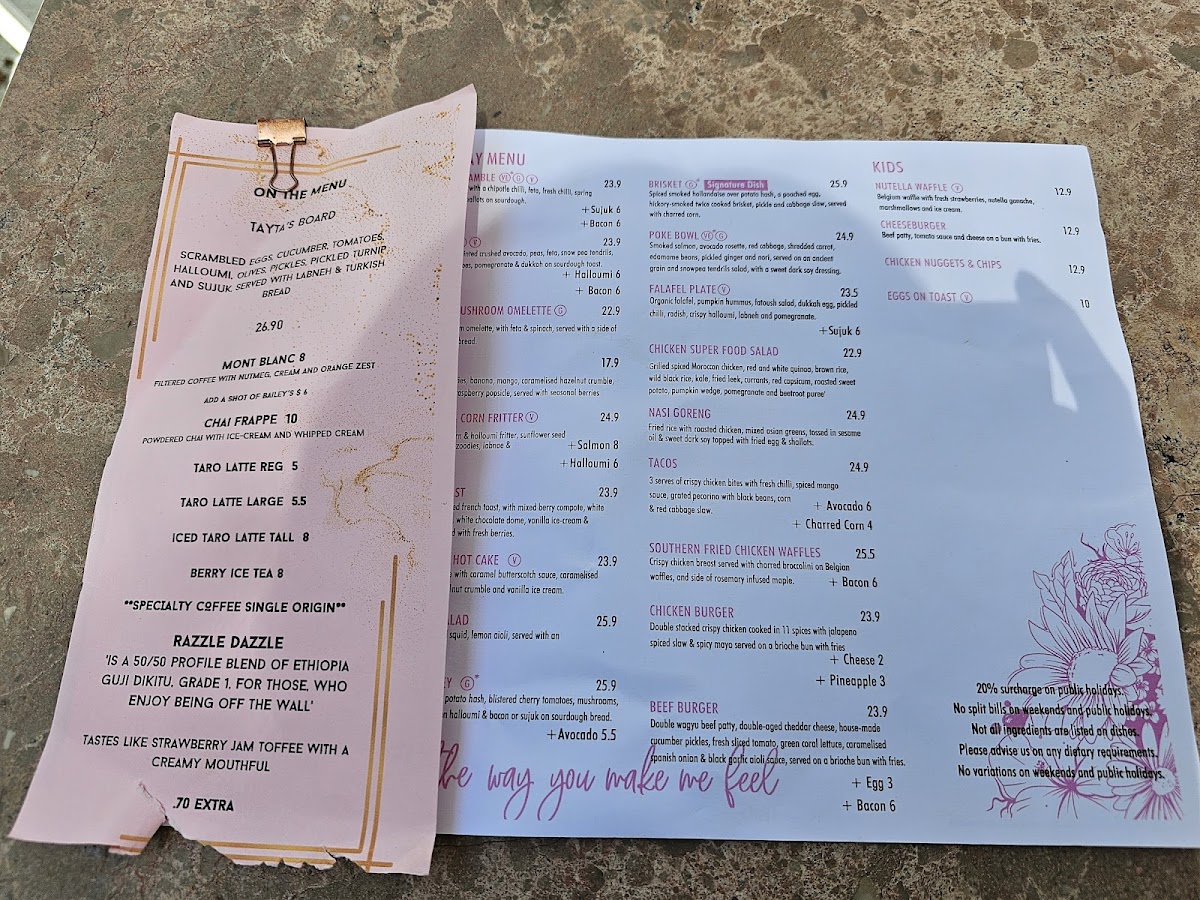 ON THE MENU
TAYTA'S BOARD
SCRAMBLED EGGS, CUCUMBER, TOMATOES,
HALLOUMI, OLIVES, PICKLES, PICKLED TURNIP
AND SUJUK. SERVED WITH LABNEH & TURKISH
BREAD
26.90
MONT BLANC 8
FILTERED COFFEE WITH NUTMEG, CREAM AND ORANGE ZEST
ADD A SHOT OF BAILEY'S $ 6
CHAI FRAPPE 10
POWDERED CHAI WITH ICE-CREAM AND WHIPPED CREAM
TARO LATTE REG 5
TARO LATTE LARGE 5.5
ICED TARO LATTE TALL 8
BERRY ICE TEA 8
**SPECIALTY COFFEE SINGLE ORIGIN**
RAZZLE DAZZLE
'IS A 50/50 PROFILE BLEND OF ETHIOPIA
GUJI DIKITU, GRADE 1, FOR THOSE, WHO
ENJOY BEING OFF THE WALL'
TASTES LIKE STRAWBERRY JAM TOFFEE WITH A
CREAMY MOUTHFUL
.70 EXTRA
AY MENU
AMBLE VE G V 23.9
with a chipotle chilli, feta, fresh chilli, spring
allots on sourdough.
+Sujuk 6
+Bacon 6
V 23.9
crushed avocado, peas, feta, snow pea tendrils,
es, pomegranate & dukkah on sourdough toast.
+ Halloumi 6
+ Bacon 6
USHROOM OMELETTE G 22.9
m omelette, with feta & spinach, served with a side of
bread.
17.9
ries, banana, mango, caramelised hazelnut crumble,
aspberry popsicle, served with seasonal berries
& CORN FRITTER V 24.9
n & halloumi fritter, sunflower seed
zoodles, labnae &
+Salmon 8
+Halloumi 6
ST 23.9
ed french toast, with mixed berry compote, white
white chocolate dome, vanilla ice-cream &
d with fresh berries.
HOT CAKE V 23.9
e with caramel butterscotch sauce, caramelised
nut crumble and vanilla ice cream.
ALAD 25.9
squid, lemon aioli, served with an
EY G* 25.9
potato hash, blistered cherry tomatoes, mushrooms,
n halloumi & bacon or sujuk on sourdough bread.
+Avocado 5.5
the way you make me feel
BRISKET G* Signature Dish 25.9
Spiced smoked hollandaise over potato hash, a poached egg,
hickory-smoked twice cooked brisket, pickle and cabbage slaw, served
with charred corn.
POKE BOWL VE* G 24.9
Smoked salmon, avocado rosette, red cabbage, shredded carrot,
edamame beans, pickled ginger and nori, served on an ancient
grain and snowpea tendrils salad, with a sweet dark soy dressing.
FALAFEL PLATE V 23.5
Organic falafel, pumpkin hummus, fatoush salad, dukkah egg, pickled
chilli, radish, crispy halloumi, labneh and pomegranate.
+Sujuk 6
CHICKEN SUPER FOOD SALAD 22.9
Grilled spiced Moroccan chicken, red and white quinoa, brown rice,
wild black rice, kale, fried leek, currants, red capsicum, roasted sweet
potato, pumpkin wedge, pomegranate and beetroot puree'
NASI GORENG 24.9
Fried rice with roasted chicken, mixed asian greens, tossed in sesame
oil & sweet dark soy topped with fried egg & shallots.
TACOS 24.9
3 serves of crispy chicken bites with fresh chilli, spiced mango
sauce, grated pecorino with black beans, corn
& red cabbage slaw.
+ Avocado 6
+ Charred Corn 4
SOUTHERN FRIED CHICKEN WAFFLES 25.5
Crispy chicken breast served with charred broccolini on Belgian
waffles, and side of rosemary infused maple.
+ Bacon 6
CHICKEN BURGER 23.9
Double stacked crispy chicken cooked in 11 spices with jalapeno
spiced slaw & spicy mayo served on a brioche bun with fries
+ Cheese 2
+ Pineapple 3
BEEF BURGER 23.9
Double wagyu beef patty, double-aged cheddar cheese, house-made
cucumber pickles, fresh sliced tomato, green coral lettuce, caramelised
spanish onion & black garlic aioli sauce, served on a brioche bun with fries.
+ Egg 3
+ Bacon 6
KIDS
NUTELLA WAFFLE V 12.9
Belgium waffle with fresh strawberries, nutella ganache,
marshmallows and ice cream.
CHEESEBURGER 12.9
Beef patty, tomato sauce and cheese on a bun with fries.
CHICKEN NUGGETS & CHIPS 12.9
EGGS ON TOAST V 10
20% surcharge on public holidays.
No split bills on weekends and public holidays.
Not all ingredients are listed on dishes.
Please advise us on any dietary requirements.
No variations on weekends and public holidays.